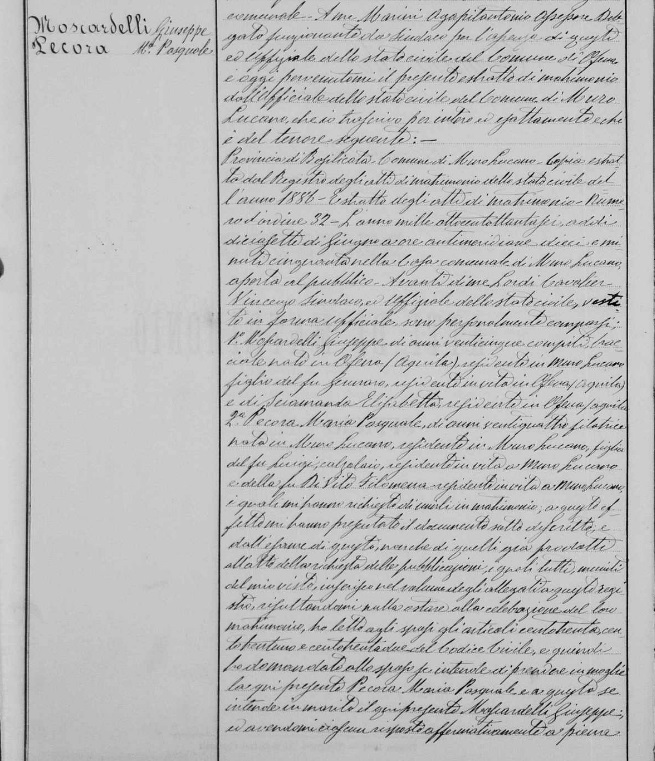 Moscardelli Giuseppe
Pecora Ma Pasquale
comunale - A me Marini Agapitantonio Assessore Dele
gato funzionante da Sindaco per l'assenza di questo
ed Uffiziale dello stato civile del Comune di Ofena
è oggi pervenutomi il presente estratto di matrimonio
dall'Officiale dello stato civile del Comune di Muro
Lucano, che io trascrivo per intero ed esattamente e che
è del tenore seguente: —
Provincia di Basilicata Comune di Muro Lucano - Copia estrat
ta dal Registro degli atti di matrimonio dello stato civile del
l'anno 1886 - Estratto degli atti di matrimonio - Nume
ro d'ordine 32 - L'anno mille ottocentottantasei, addì
diciassette di Giugno a ore antimeridiane dieci e mi
nuti cinquanta nella Casa comunale di Muro Lucano,
aperta al pubblico - Avanti di me Lordi Cavalier
Vincenzo Sindaco, ed Uffiziale dello stato civile, vesti
to in forma ufficiale sono personalmente comparsi;
1º Moscardelli Giuseppe di anni venticinque compiti, brac
ciale nato in Ofena (Aquila), residente in Muro Lucano
figlio del fu Gennaro, residente in vita in Ofena (Aquila)
e di Sciamanda Elisabetta, residente in Ofena (Aquila)
2ª Pecora Maria Pasquale, di anni ventiquattro filatrice
nata in Muro Lucano, residente in Muro Lucano, figlia
del fu Luigi, calzolaio, residente in vita a Muro Lucano
e della fu Di Vito Filomena residente in vita a Muro Lucano,
i quali mi hanno richiesto di unirli in matrimonio; a questo ef
fetto mi hanno presentato il documento sotto descritto, e
dall'esame di questo, nonché di quelli già prodotti
all'atto della richiesta delle pubblicazioni, i quali tutti, muniti
del mio visto, inserisco nel volume degli allegati a questo regi
stro, risultandomi nulla ostare alla celebrazione del loro
matrimonio, ho letto agli sposi gli articoli centotrenta, cen
totrentuno e centotrentadue del Codice Civile, e quindi
ho domandato allo sposo se intende di prendere in moglie
la qui presente Pecora Maria Pasquale e a questa se
intende in marito il qui presente Moscardelli Giuseppe;
ed avendomi ciascun risposto affermativamente a piena